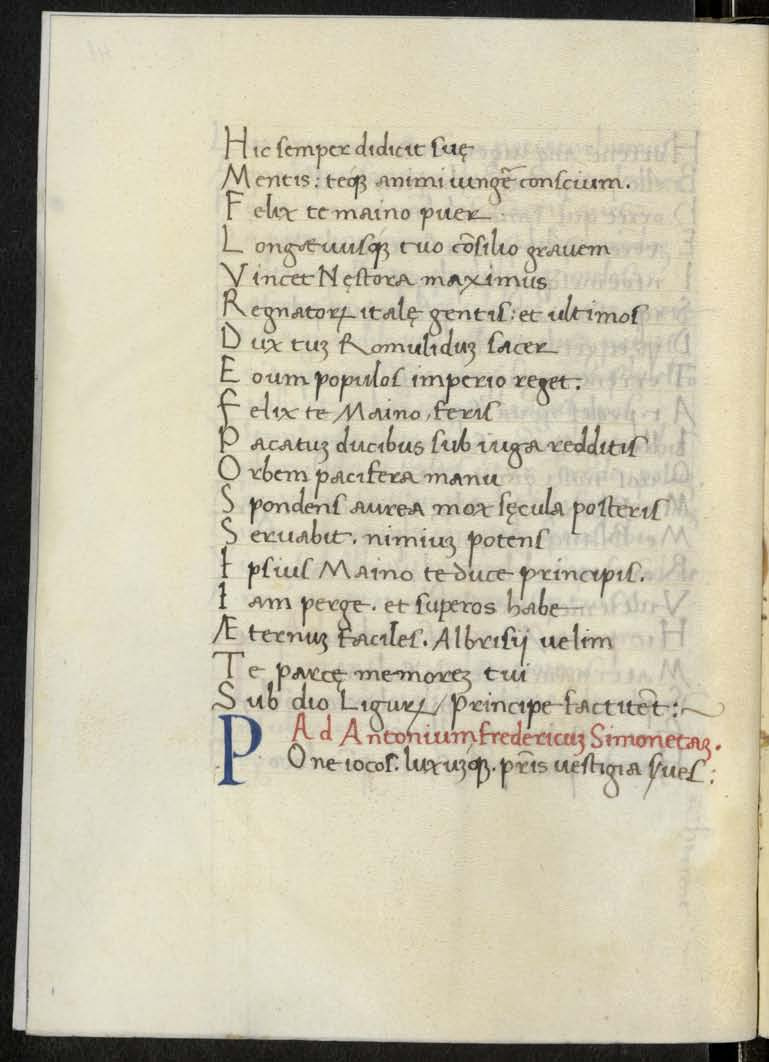 Hic semper didicit suę
Mentis: teqꝫ animi iungē conscium.
Felix te maino puer
Longæuusqꝫ tuo cōsilio grauem
Vincet Nęstora maximus
Regnatoꝝ italę gentis: et ultimos
Dux tuꝫ Romuliduꝫ sacer
Eoum populos imperio reget:
Felix te Maino, feris
Pacatuꝫ ducibus sub iuga redditis
Orbem pacifera manu
Spondens aurea mox sęcula posteris
Seruabit. nimiuꝫ potens
Ipsius Maino te duce principis.
Iam perge. et superos habe
Æternuꝫ faciles. Albrisij uelim
Te parcę memoreꝫ tui
Sub dio Liguꝝ / principe factitēt:~
Ad Antonium fredericuꝫ Simonetaꝫ.
POne iocos. luxuꝫqꝫ. pr̄is uestigia